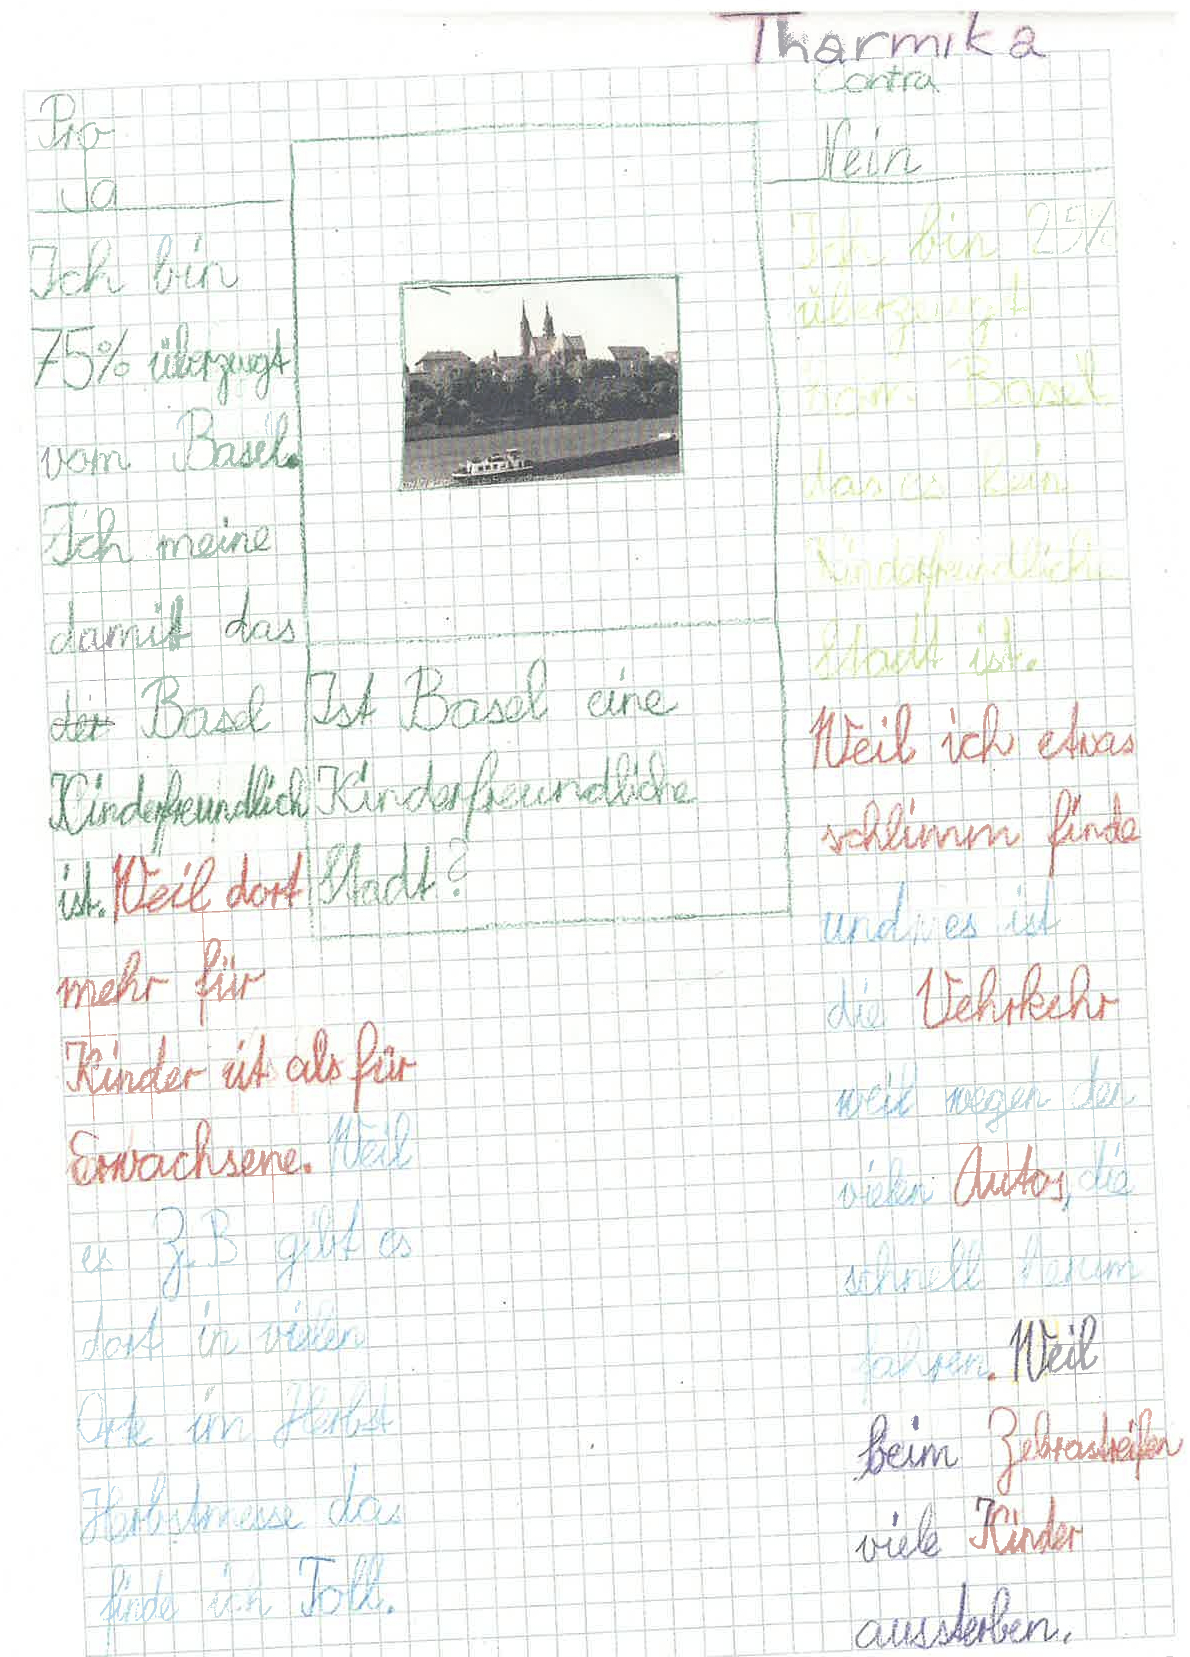 Tharmika
Pro
Ja
Ich bin
75% überzeugt
vom Basel.
Ich meine
damit das
der Basel
Kinderfreundlich
ist. Weil dort
mehr für
Kinder ist als für
Erwachsene. Weil
es Z.B gibt es
dort in vielen
Orte im Herbst
Herbstmesse das
finde ich Toll.
Ist Basel eine
Kinderfreundliche
Stadt?
Contra
Nein
Ich bin 25%
überzeugt
vom Basel
das es kein
Kinderfreundliche
Stadt ist.
Weil ich etwas
schlimm finde
und es ist
die Vehrkehr
weil wegen den
vielen Autos, die
schnell herum
fahren. Weil
beim Zebrastreifen
viele Kinder
aussterben.